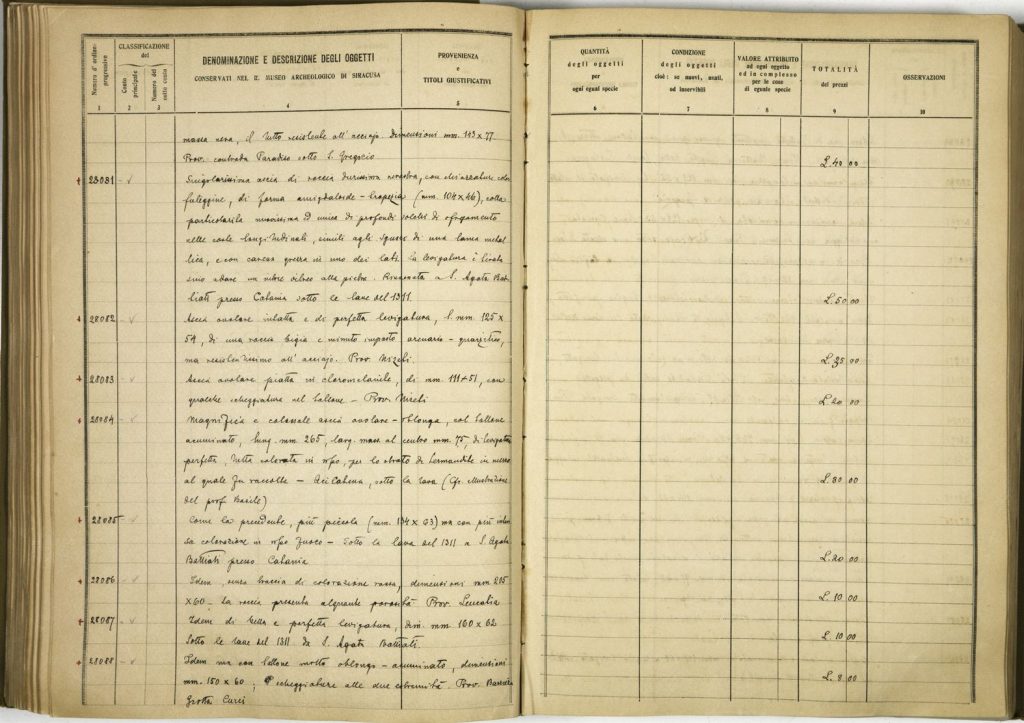 Numero d'ordine progressivo
CLASSIFICAZIONE del
Conto principale
Numero del sotto conto
DENOMINAZIONE E DESCRIZIONE DEGLI OGGETTI
CONSERVATI NEL R. MUSEO ARCHEOLOGICO DI SIRACUSA
PROVENIENZA
E
TITOLI GIUSTIFICATIVI
1 2 3 4 5
massa nera, il tutto resistente all'acciajo. Dimensioni mm. 143 x 77
Prov. contrada Paradiso sotto S. Gregorio
28081 Singolarissima ascia di roccia durissima nerastra, con chiazzature color
fuliggine, di forma amigdaloide-trapezia (mm. 104 x 46), colla
particolarità nuovissima ed unica di profondi solchi di
nelle coste longitudinali, simili agli sgusci di una lama metal
lica, e con in uno dei lati. La levigatura è tirata
sino a dare un vetroso alla pietra. Rinvenuta a S. Agata Bat
tiati presso Catania sotto le lave del 1311.
28082 Ascia ovolare intatta e di perfetta levigatura, mm. 125 x
54, di una roccia bigia e minuto impasto arenario-quarzitico,
ma resistentissimo all'acciajo. Prov. Mizebi.
28083 Ascia ovolare piatta in cloromelanite, di mm. 111 x 51, con
qualche scheggiatura nel tallone - Prov.
28084 Magnifica e colossale ascia ovolare-oblonga, col tallone
acuminato, lung. mm. 265, larg. mass. al centro mm. 75, di levigatura
perfetta, tutta colorata in rosso, per lo strato di in mezzo
al quale fu raccolta - Aci Catena, sotto la lava (Cfr. illustrazione
del prof. Basile)
28085 Come la precedente, più piccola (mm. 134 x 63) ma con più inten
sa colorazione in rosso fuoco - Sotto la lava del 1311 a S. Agata
Battiati presso Catania
28086 Idem, senza traccia di colorazione rossa, dimensioni mm 215
x 60 - La roccia presenta alquante porosità Prov. Leucatia
28087 Idem di bella e perfetta levigatura, dim. mm. 160 x 62
Sotto le lave del 1311 da S. Agata Battiati.
28088 Idem ma con tallone molto oblungo-acuminato, dimensioni
mm. 150 x 60; scheggiature alle due estremità. Prov.
Grotta Curci
QUANTITÀ
degli oggetti
per
ogni egual specie
CONDIZIONE
degli oggetti
cioè: se nuovi, usati,
od inservibili
VALORE ATTRIBUITO
ad ogni oggetto
ed in complesso
per le cose
di eguale specie
TOTALITÀ
dei prezzi
OSSERVAZIONI
6 7 8 9 10
L. 40 00
L. 50 00
L. 35 00
L. 20 00
L. 80 00
L. 20 00
L. 10 00
L. 10 00
L. 8 00